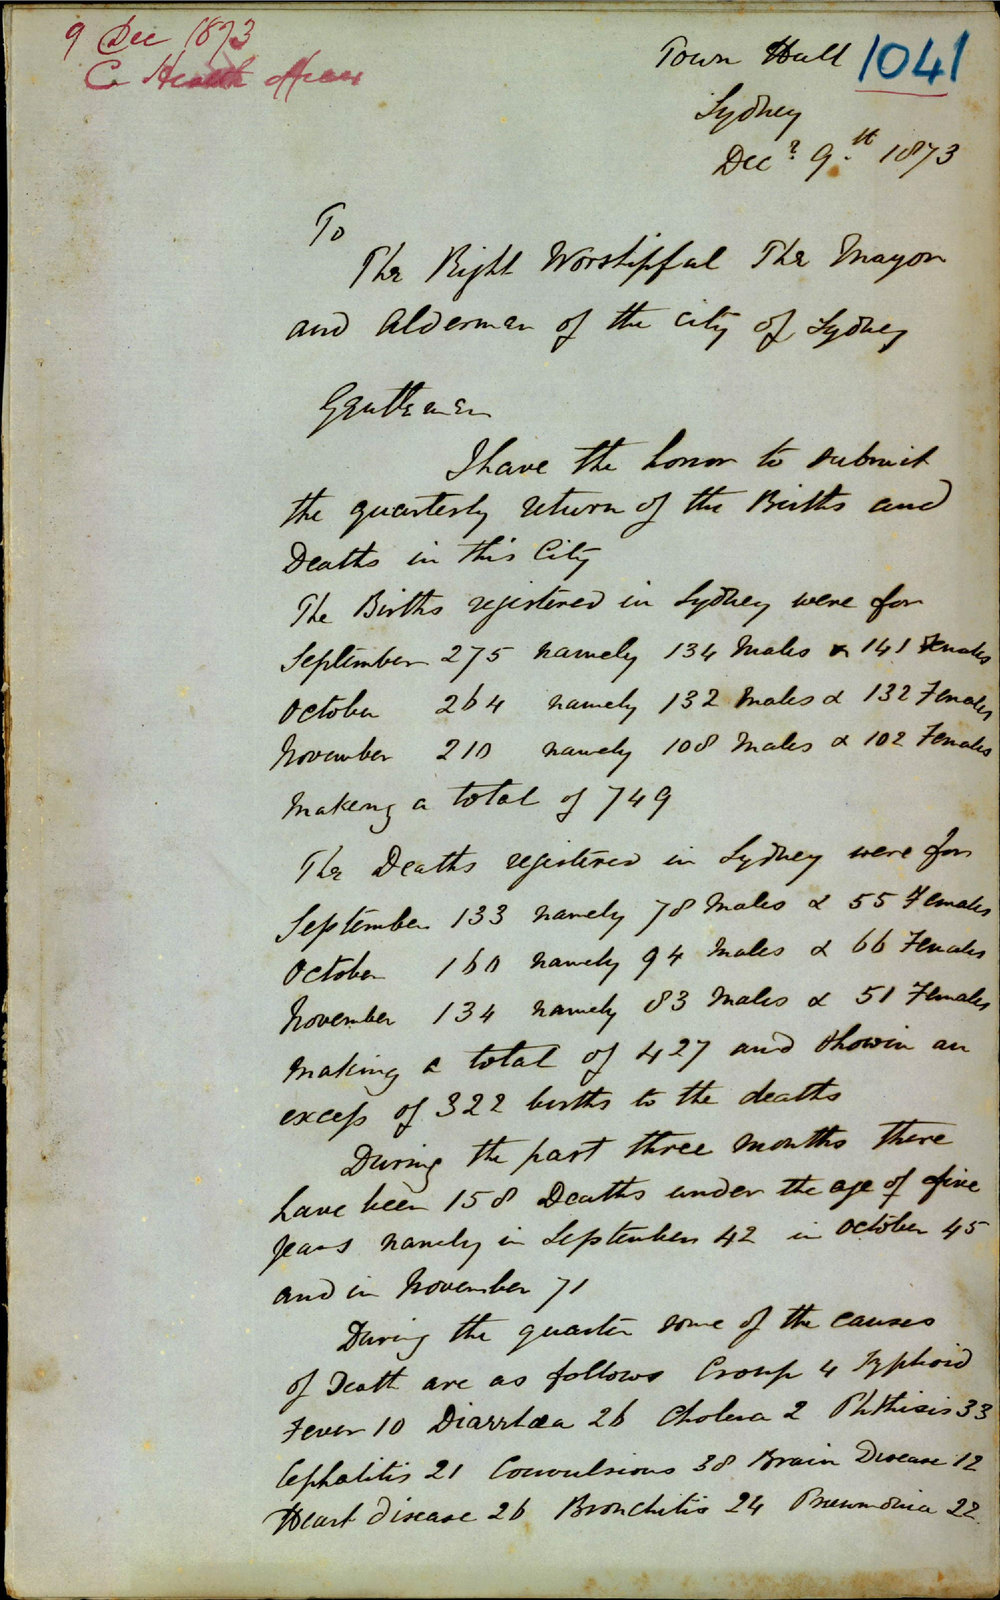 9 Dec 1873
C Health Officer
Town Hall 1041
Sydney
Decr. 9.th 1873
To
The Right Worshipful The Mayor
and Aldermen of the City of Sydney
Gentlemen
I have the honor to submit
the quarterly return of the Births and
Deaths in this City
The Births registered in Sydney were for
September 275 namely 134 Males & 141 Females
October 264 namely 132 Males & 132 Females
November 210 namely 108 Males & 102 Females
Making a total of 749
The Deaths registered in Sydney were for
September 133 namely 78 Males & 55 Females
October 160 namely 94 Males & 66 Females
November 134 namely 83 Males & 51 Females
Making a total of 427 and showin an
excess of 322 births to the deaths
During the past three months there
have been 158 Deaths under the age of five
years namely in September 42 in October 45
and in November 71
During the quarter some of the causes
of Death are as follows Croup 4 Typhoid
Fever 10 Diarrhœa 26 Cholera 2 Phthisis 33
Cephalitis 21 Convulsions 38 Brain Disease 12
Heart disease 26 Bronchitis 24 Pneumonia 22